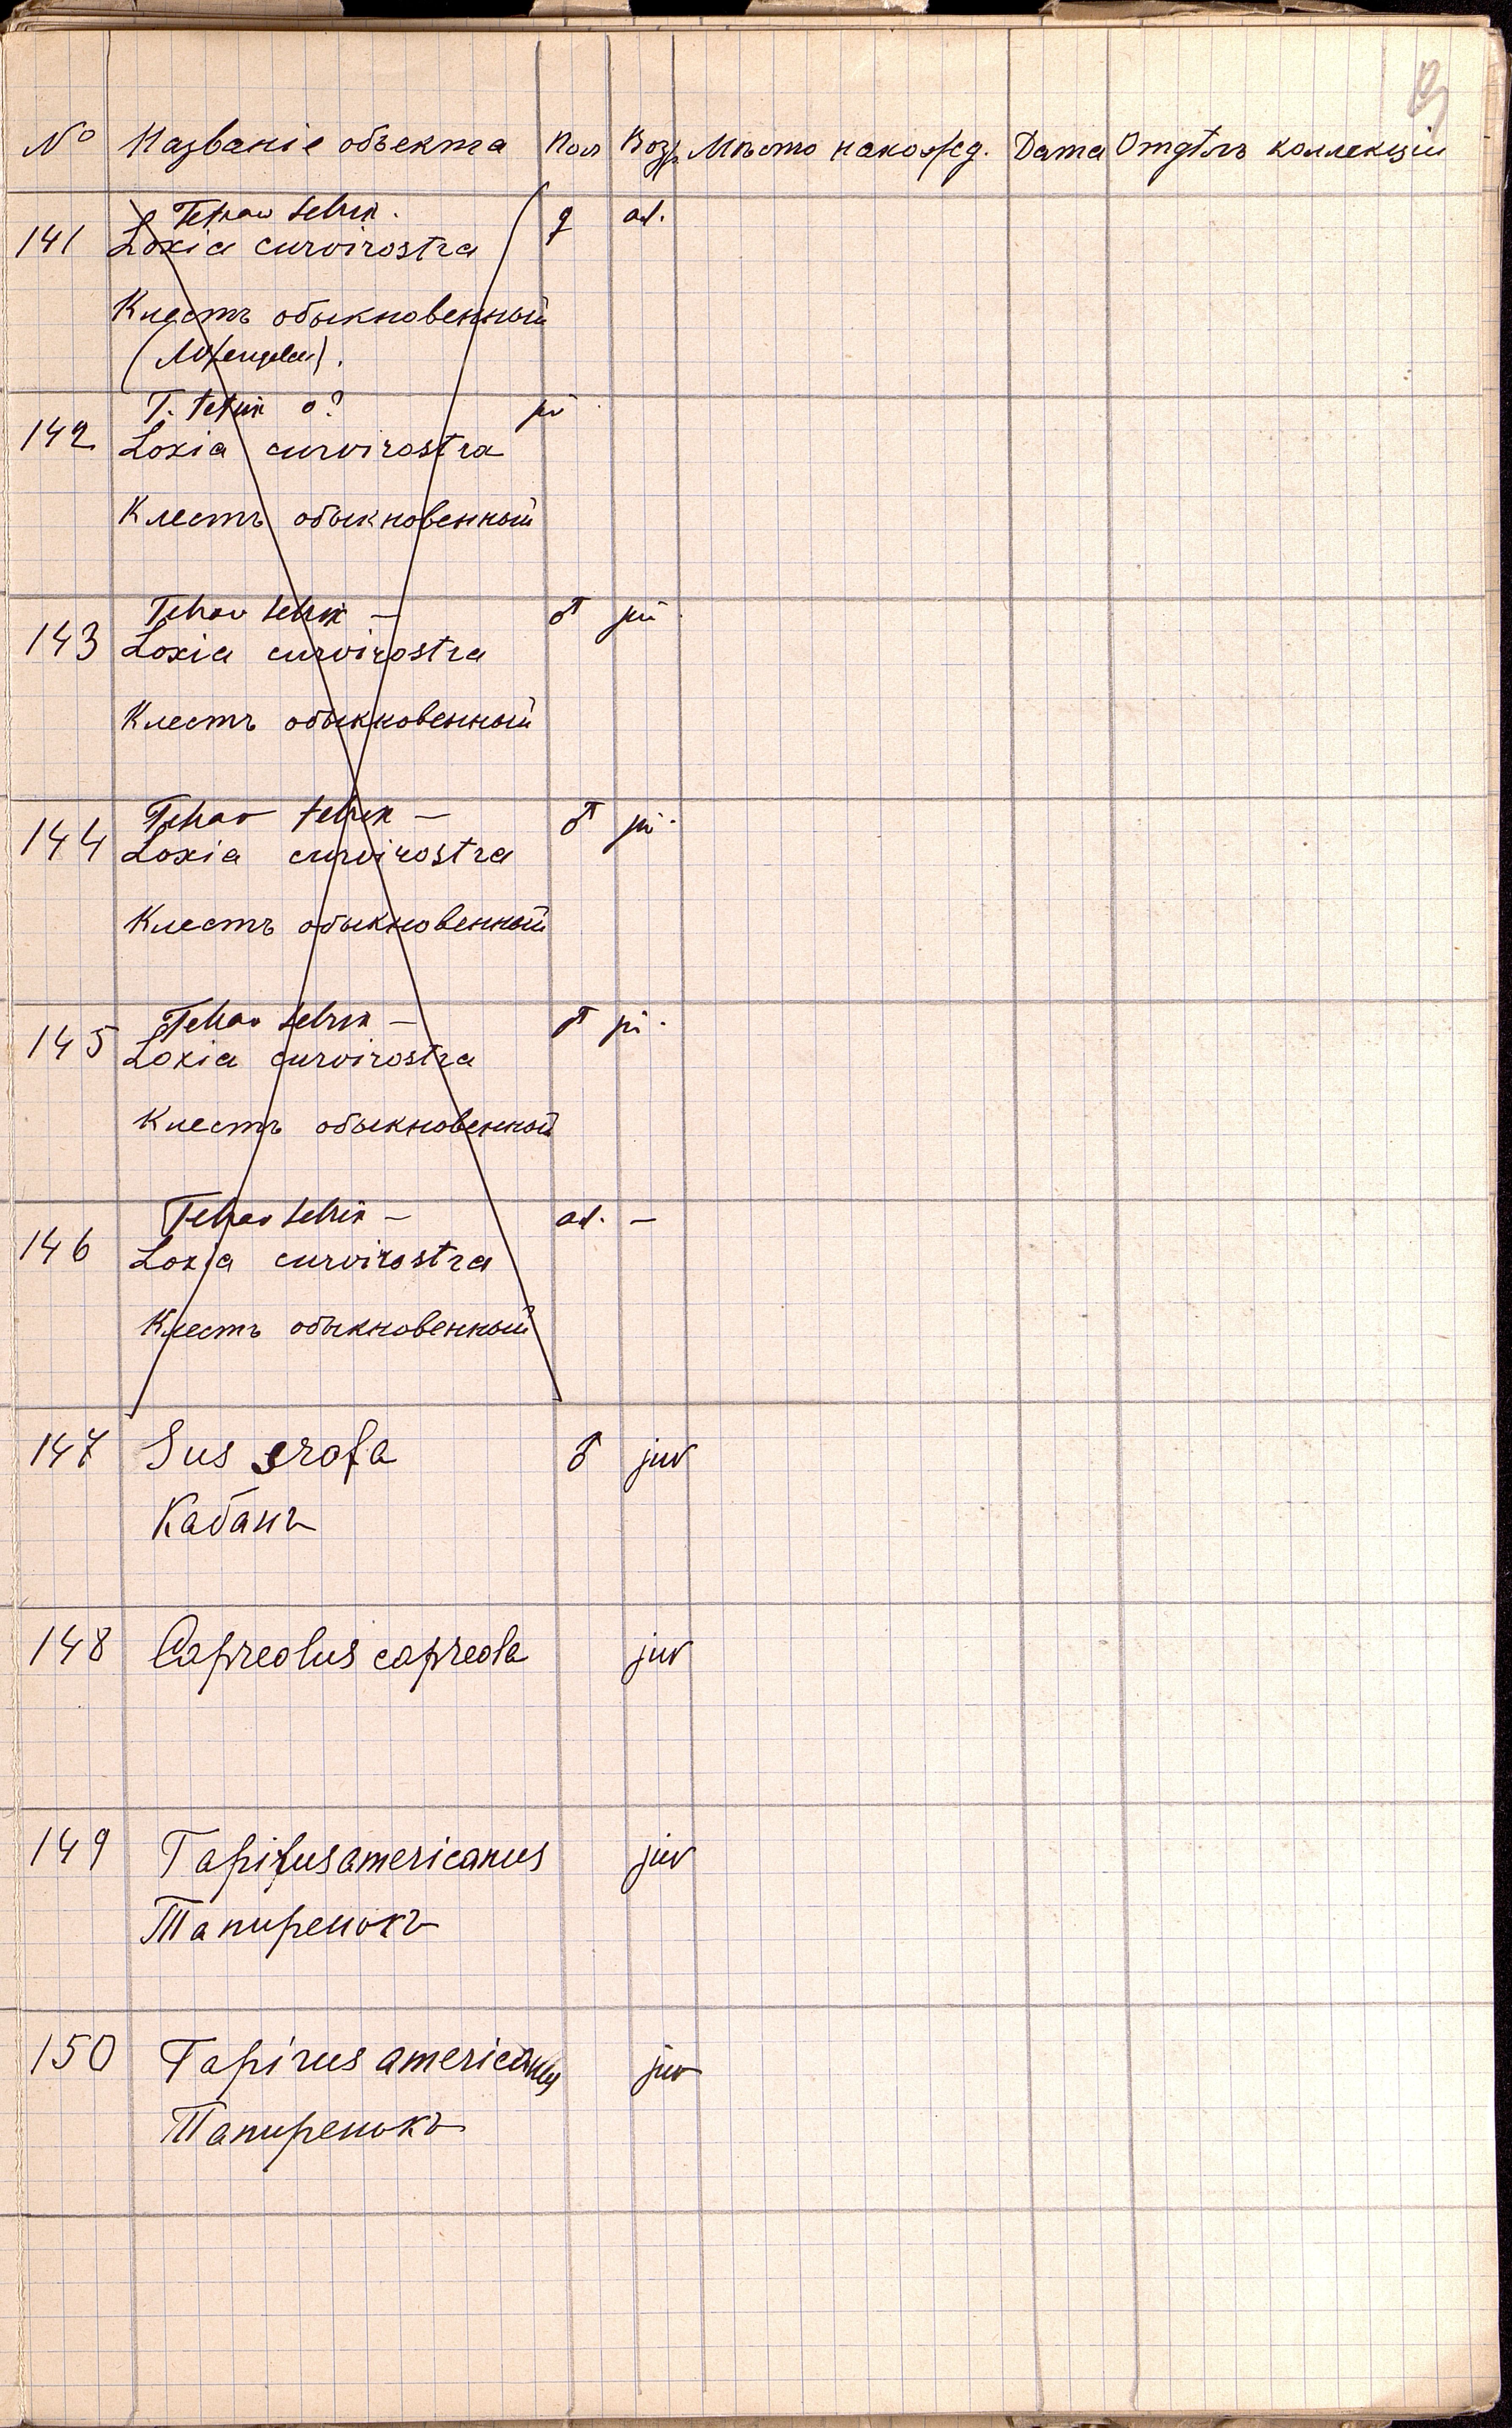 № Названіе объекта Пол Возр. Мѣсто нахожд. Дата Отдѣлъ коллекціи
Tetrao tetrix. ♀ ad.
141 Loxia curvirostra
Клестъ обыкновенный
142 T. tetrix o? juv
Loxia curvirostra
Клестъ обыкновенный
Tetrao tetrix — ♂ juv
143 Loxia curvirostra
Клестъ обыкновенный
Tetrao tetrix — ♂ juv.
144 Loxia curvirostra
Клестъ обыкновенный
Tetrao tetrix — ♂ juv.
145 Loxia curvirostra
Клестъ обыкновенный
Tetrao tetrix — ad. —
146 Loxia curvirostra
Клестъ обыкновенный
147 Sus srofa ♂ juv
Кабанъ
148 Capreolus capreola juv
149 Tapirus americanus juv
Тапиренокъ
150 Tapirus americanus juv
Тапиренокъ